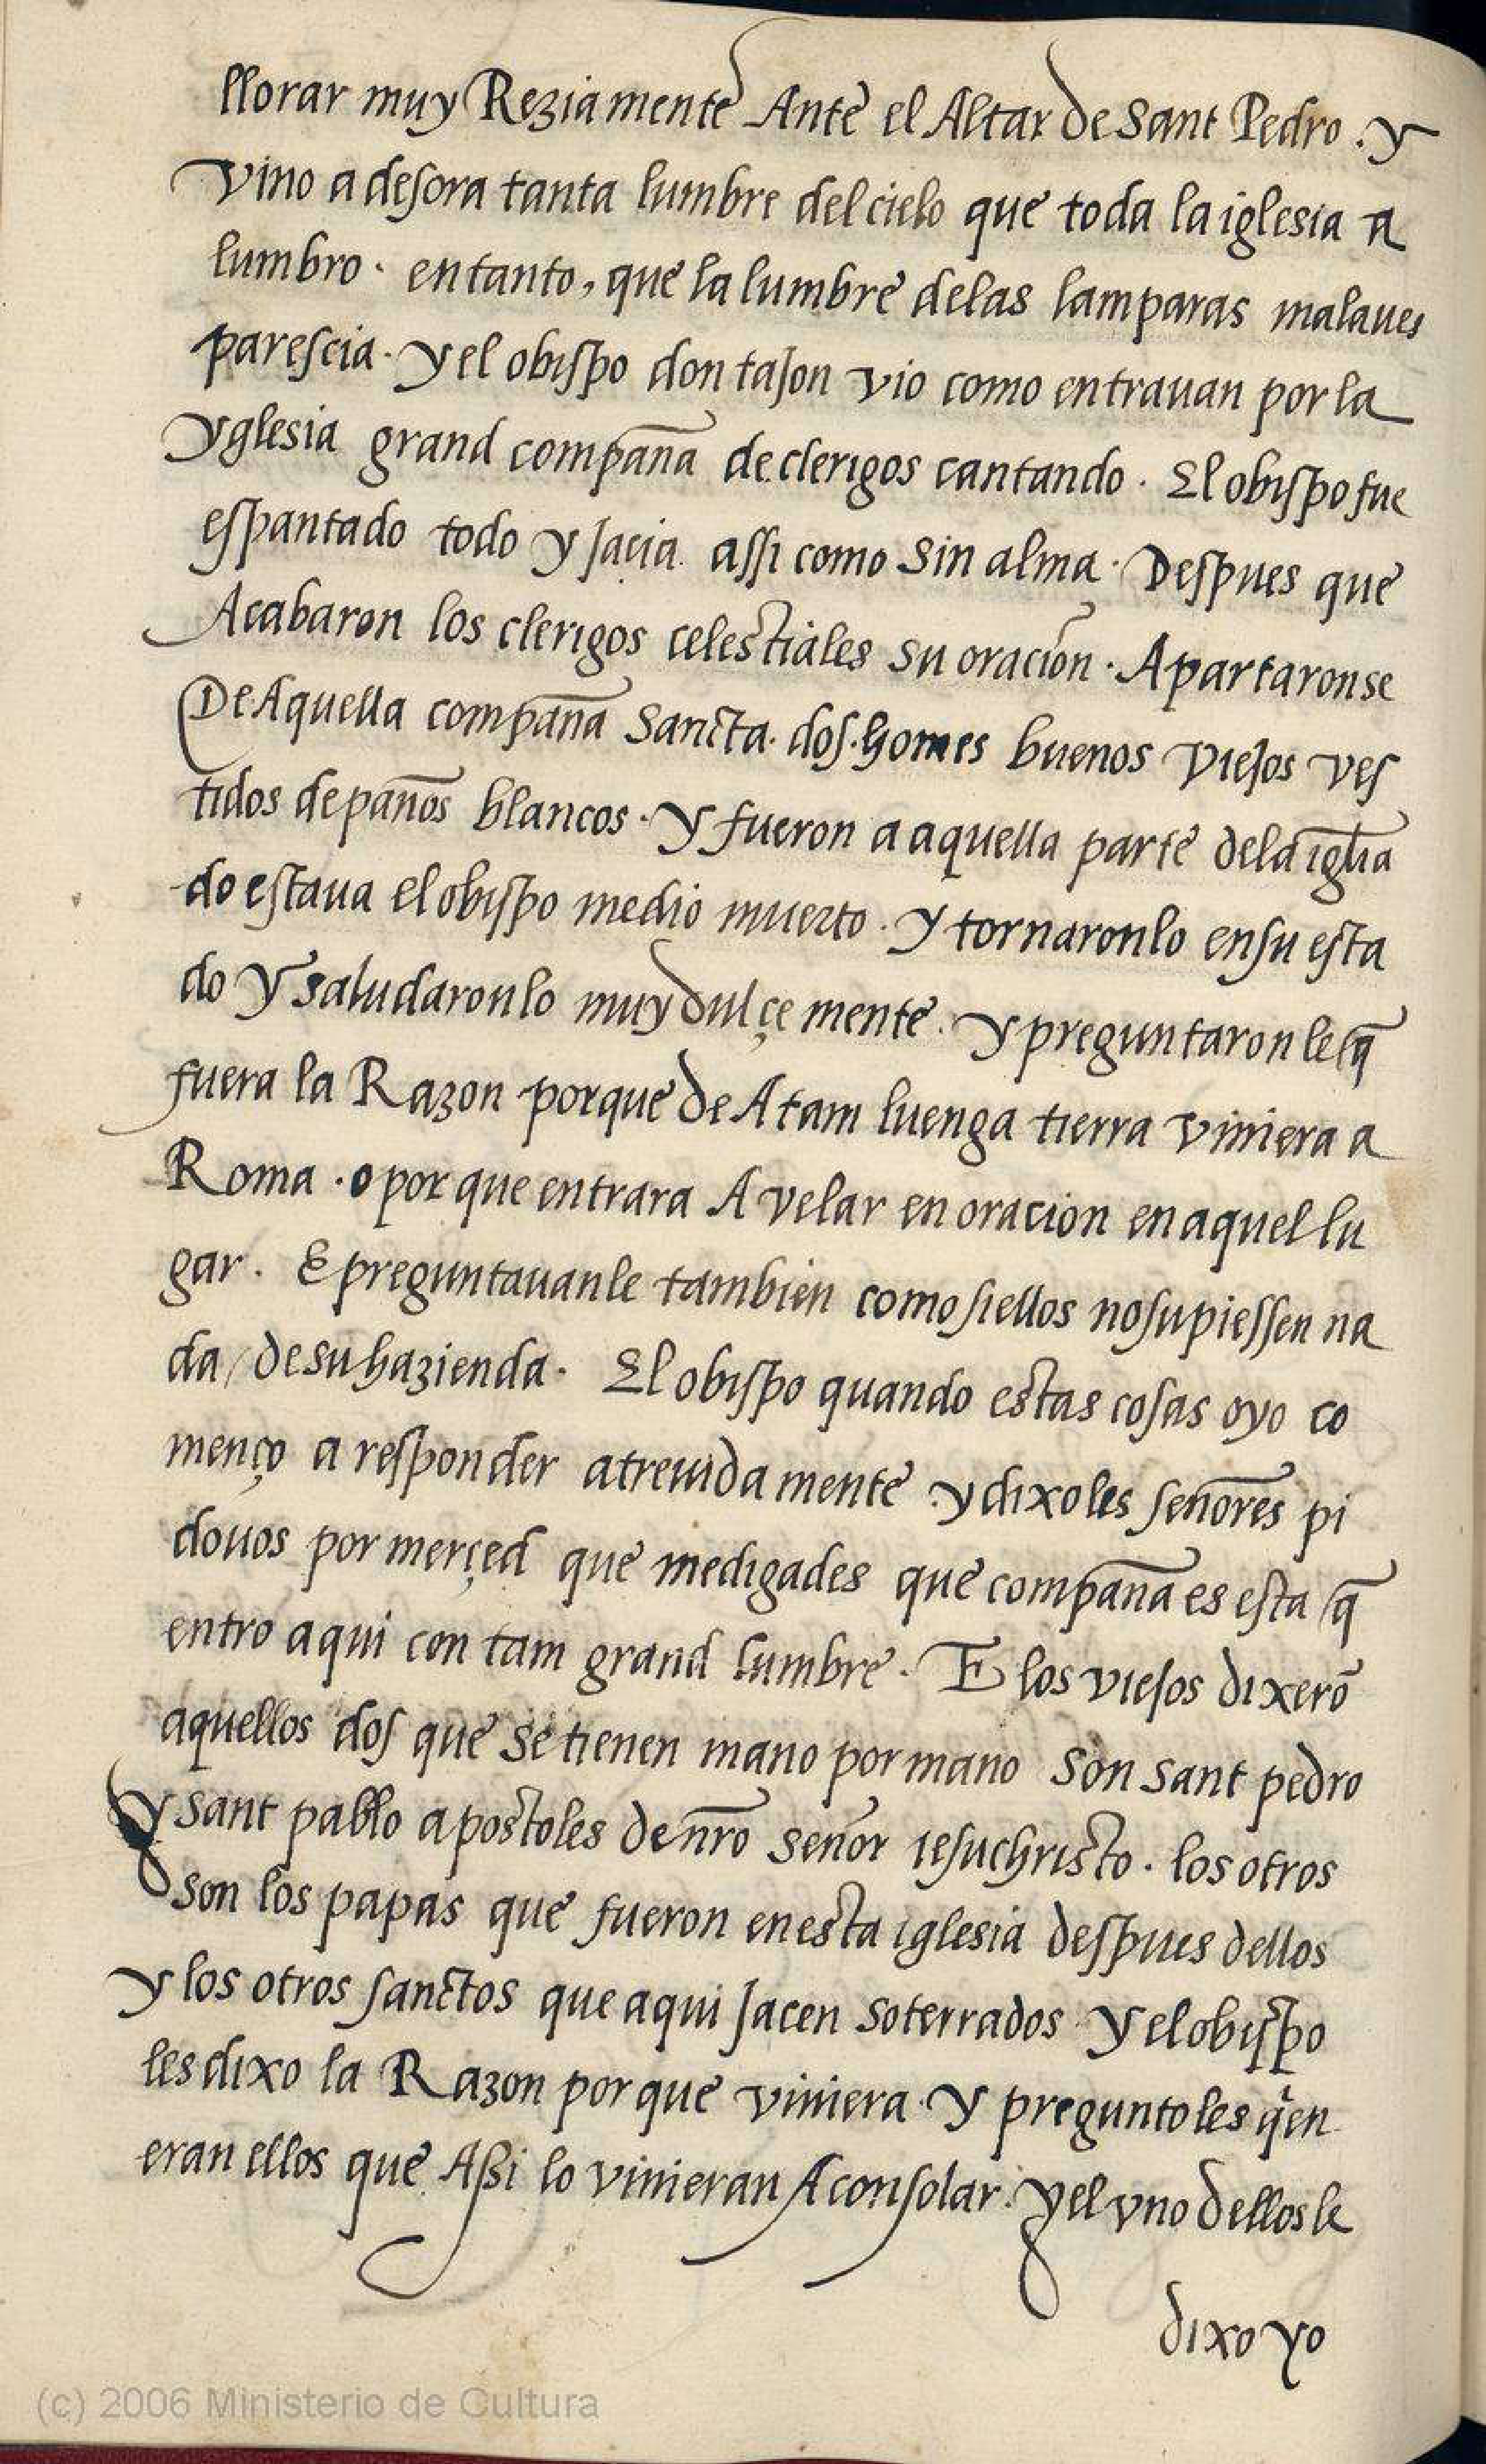 llorar muy Reziamente Ante el Altar de Sant Pedro. y
vino a desora tanta lumbre del cielo que toda la iglesia a
lumbro. en tanto, que la lumbre delas lamparas malaues
parescia. y el obispo don tajon vio como entrauan por la
yglesia grand compaña de clerigos cantando. El obispo fue
espantado todo y jaçia assi como sin alma. Despues que
Acabaron los clerigos celestiales su oración. Apartaronse
De Aquella compaña Sancta. dos. homes buenos viejos ves
tidos de paños blancos. y fueron a aquella parte dela iglia
do estaua el obispo medio muerto. y tornaronlo en su esta
do y saludaronlo muy dulçe mente. y preguntaron le q̃
fuera la Razon porque de Atam luenga tierra viniera a
Roma. o por que entrara A velar en oracion en aquel lu
gar. E preguntauanle tambien como si ellos no supiessen na
da / de su hazienda. El obispo quando estas cosas oyo co
menço a responder atreuida mente y dixoles señores pi
douos por merçed que me digades que compaña es esta q̃
entro aqui con tam grand lumbre. E los viejos dixerõ
aquellos dos que se tienen mano por mano son sant pedro
y sant pablo apostoles de nr̃o señor iesuchristo. los otros
son los papas que fueron en esta iglesia despues dellos
y los otros sanctos que aqui jacen soterrados y el obispo
les dixo la Razon por que viniera. y preguntoles qien
eran ellos que Aßi lo vinieran A consolar. y el vno dellos le
dixo yo
(c) 2006 Ministerio de Cultura